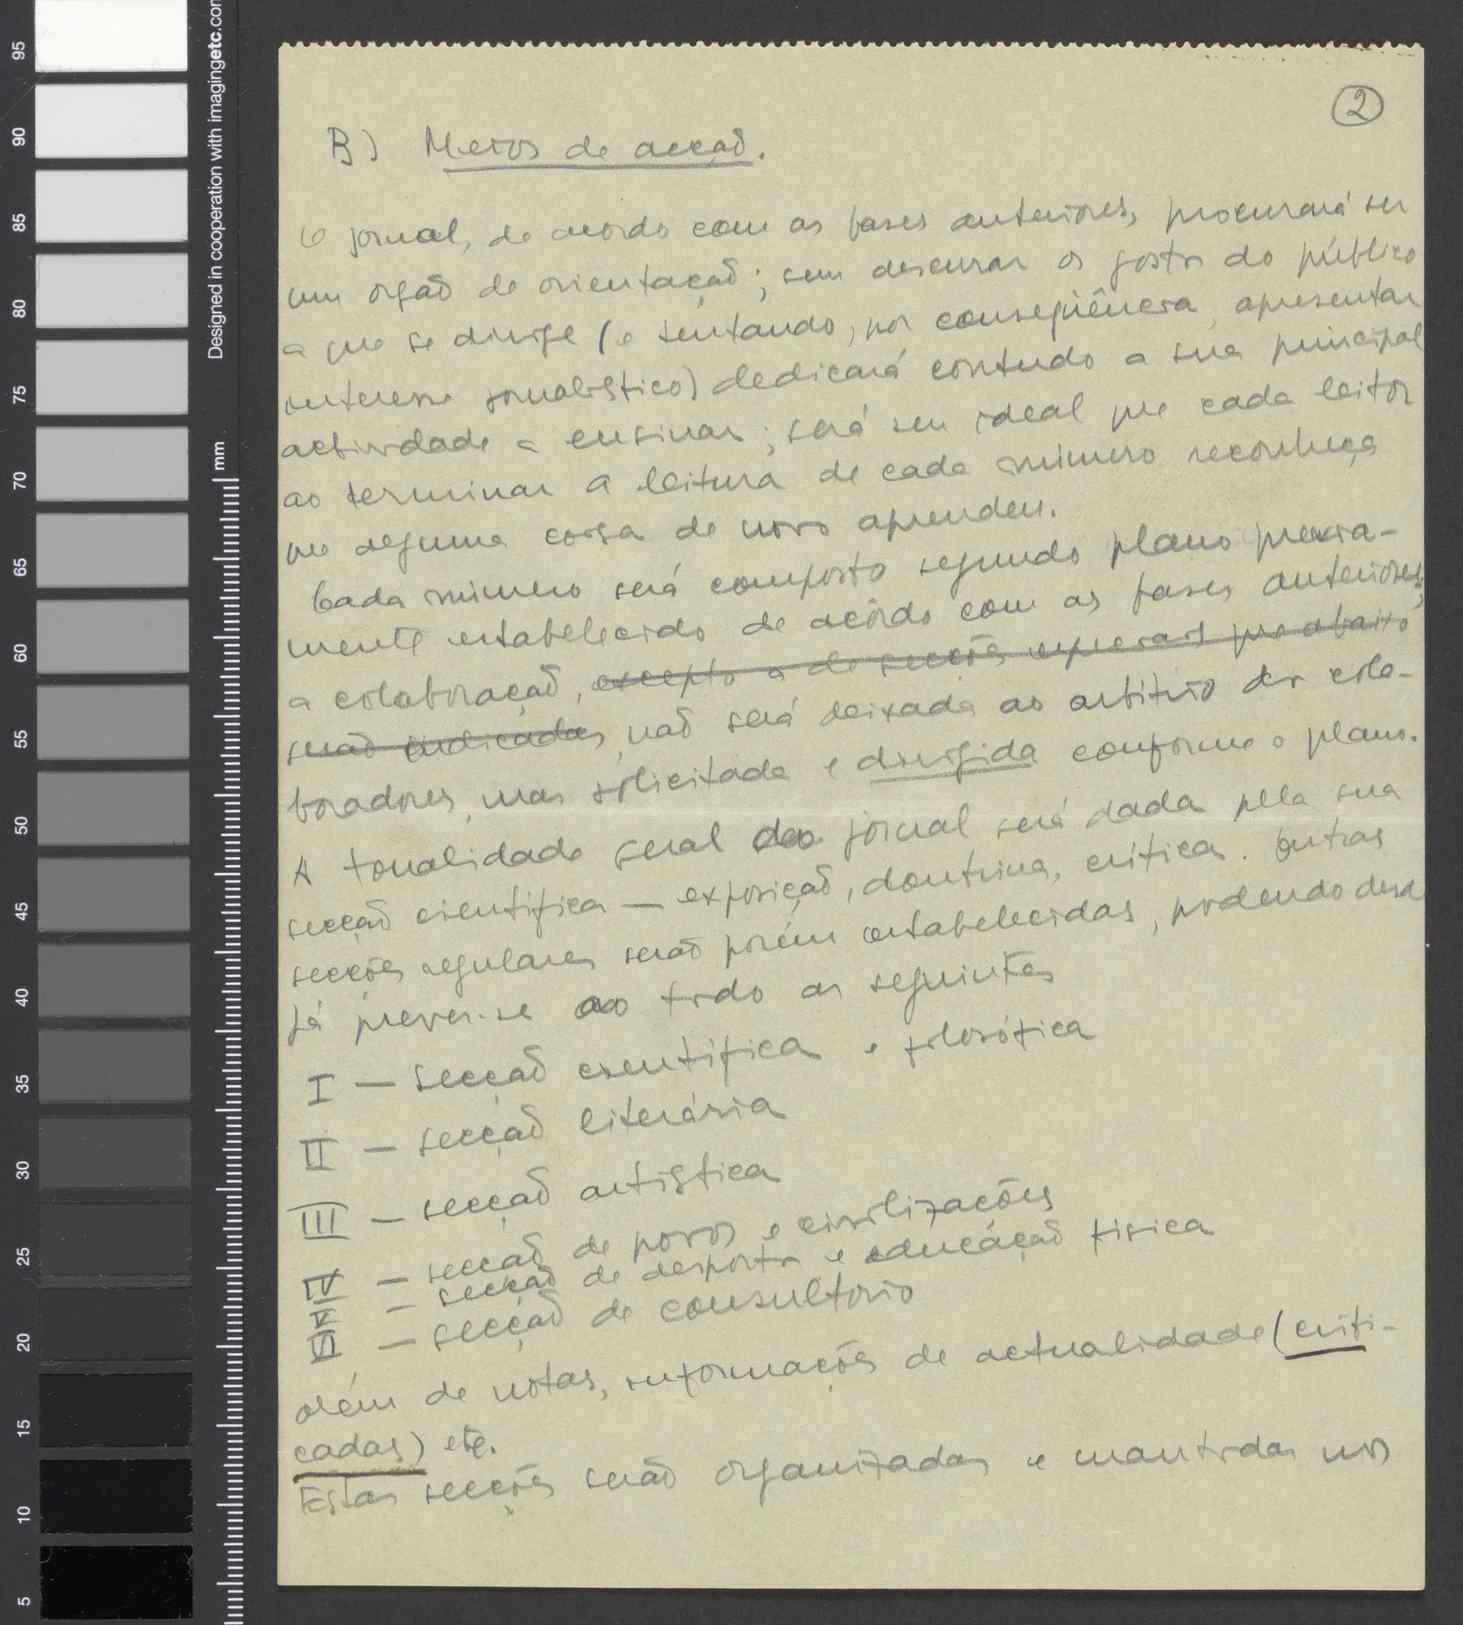 2
B) Meios de acção.
O jornal, de acordo com as bases anteriores, procurará ser
um orgão de orientação; sem descurar os gostos do público
a que se dirige (e tentando, por conseqüência, apresentar
interesse jornalístico) dedicará contudo a sua principal
actividade a ensinar; será seu ideal que cada leitor
ao terminar a leitura de cada número reconheça
que alguma coisa de novo aprendeu.
Cada número será composto segundo plano previa-
mente estabelecido de acôrdo com as bases anteriores;
a colaboração, excepto a de secções especiais que abaixo
serão indicadas, não será deixada ao arbítrio dos cola-
boradores, mas solicitada e dirigida conforme o plano.
A tonalidade geral do jornal será dada pela sua
secção cientifica — exposição, doutrina, crítica. Outras
secções regulares serão porém estabelecidas, podendo desde
já prever-se ao todo as seguintes
I — Secção cientifica e filosófica
II — secção literária
III — secção artistica
IV — secção de povos e civilizações
V — secção de desporto e educação fisica
VI — secção de consultorio
além de notas, informações de actualidade (criti-
cadas) etc.
Estas secções serão organizadas e mantidas nos
95
90
85
80
75
70
65
60
55
50
45
40
35
30
25
20
15
10
5
mm
Designed in cooperation with imagingetc.com